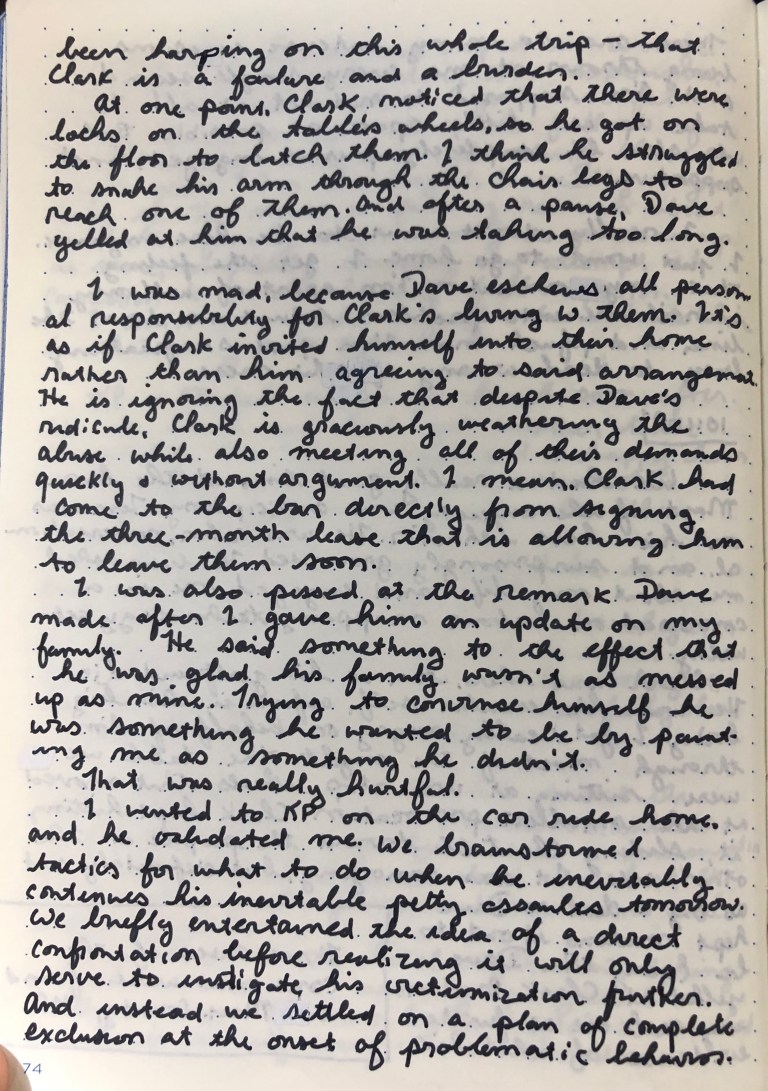 been harping on this whole trip - that
Clark is a failure and a burden.
At one point, Clark noticed that there were
locks on the table's wheels, so he got on
the floor to latch them. I think he struggled
to snake his arm through the chair legs to
reach one of them. And after a pause, Dave
yelled at him that he was taking too long.
I was mad, because Dave eschews all person
al responsibility for Clark's living w them. It's
as if Clark invited himself into their home
rather than him agreeing to said arrangement.
He is ignoring the fact that despite Dave's
ridicule, Clark is graciously weathering the
abuse while also meeting all of their demands
quickly & without argument. I mean, Clark had
come to the bar directly from signing
the three-month lease that is allowing him
to leave them soon.
I was also pissed at the remark Dave
made after I gave him an update on my
family. He said something to the effect that
he was glad his family wasn't as messed
up as mine. Trying to convince himself he
was something he wanted to be by paint-
ing me as something he didn't.
That was really hurtful.
I vented to KP on the car ride home,
and he validated me. We brainstormed
tactics for what to do when he inevitably
continues his inevitable petty assaults tomorrow.
We briefly entertained the idea of a direct
confrontation before realizing it will only
serve to instigate his victimization further.
And instead we settled on a plan of complete
exclusion at the onset of problematic behavior.
74